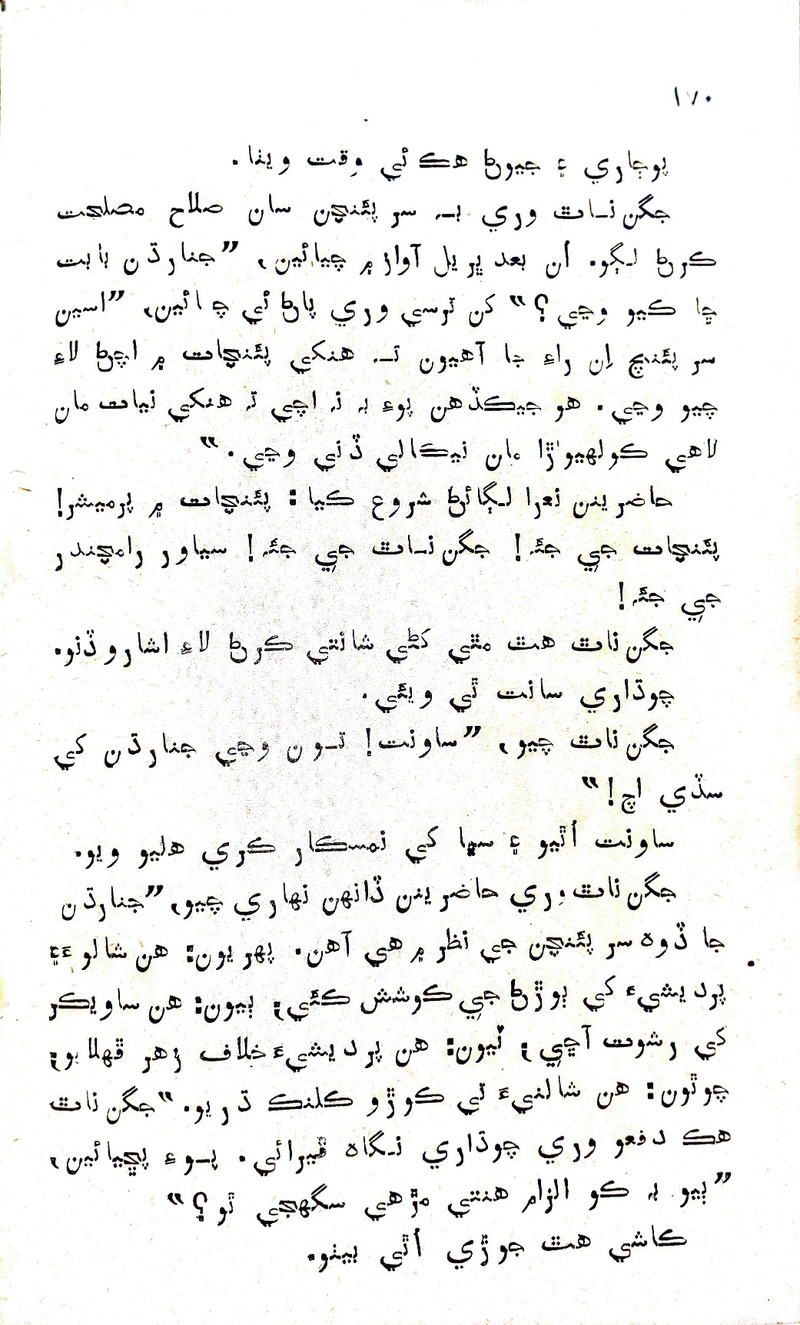 ١٧٠
پوڄاري ۽ جيوڻ هڪ ئي وقت ويٺا.
جگن نـاٿ وري بـہ سر پئنچن سان صلاح مصلحت
ڪرڻ لـڳو. اُن بعد ڀريل آواز ۾ چيائين، ”جنارڌن بابت
ڇا ڪيو وڃي؟“ کن ترسي وري پاڻ ئي چـائين، ”اسين
سر پئنچ اِن راءِ جا آهيون تـہ هنکي پئنچات ۾ اچڻ لاءِ
چيو وڃي. هو جيڪڏهن پوءِ بہ نہ اچي تہ هنکي نيات مان
لاهي ڪولهيوڙا مان نيڪالي ڏني وڃي.“
حاضرينن نعرا لـڳائڻ شروع ڪيا: پئنچات ۾ پرميشر!
پئنچات جي جئہ! جگن نـاٿ جي جئہ! سياور رامچندر
جي جئہ!
جگن ناٿ هٿ مٿي کڻي شانتي ڪرڻ لاءِ اشارو ڏنو.
چوڌاري سانت ٿي ويئي.
جگن ناٿ چيو، ”ساونت! تـون وڃي جنارڌن کي
سڏي اچ!“
ساونت اُٿيو ۽ سڀا کي نمسڪار ڪري هليو ويو.
جگن ناٿ وري حاضرينن ڏانهن نهاري چيو، ”جنارڌن
جا ڏوهہ سر پئنچن جي نظر ۾ هي آهن. پهريون: هن شالو ۽
پرديشيءَ کي ٻوڙڻ جي ڪوشش ڪئي؛ ٻيون: هن ساويڪر
کي رشوت آڇي؛ ٽيون: هن پرديشيءَ خلاف زهر ڦهلايو؛
چوٿون: هن شالنيءَ تي ڪوڙو ڪلنڪ ڌريو.“ جگن ناٿ
هڪ دفعو وري چوڌاري نـگاهہ ڦيرائي. پـوءِ پڇيائين،
”ٻيو بہ ڪو الزام هنتي مڙهي سگهجي ٿو؟“
ڪاشي هٿ جوڙي اُٿي بيٺو.